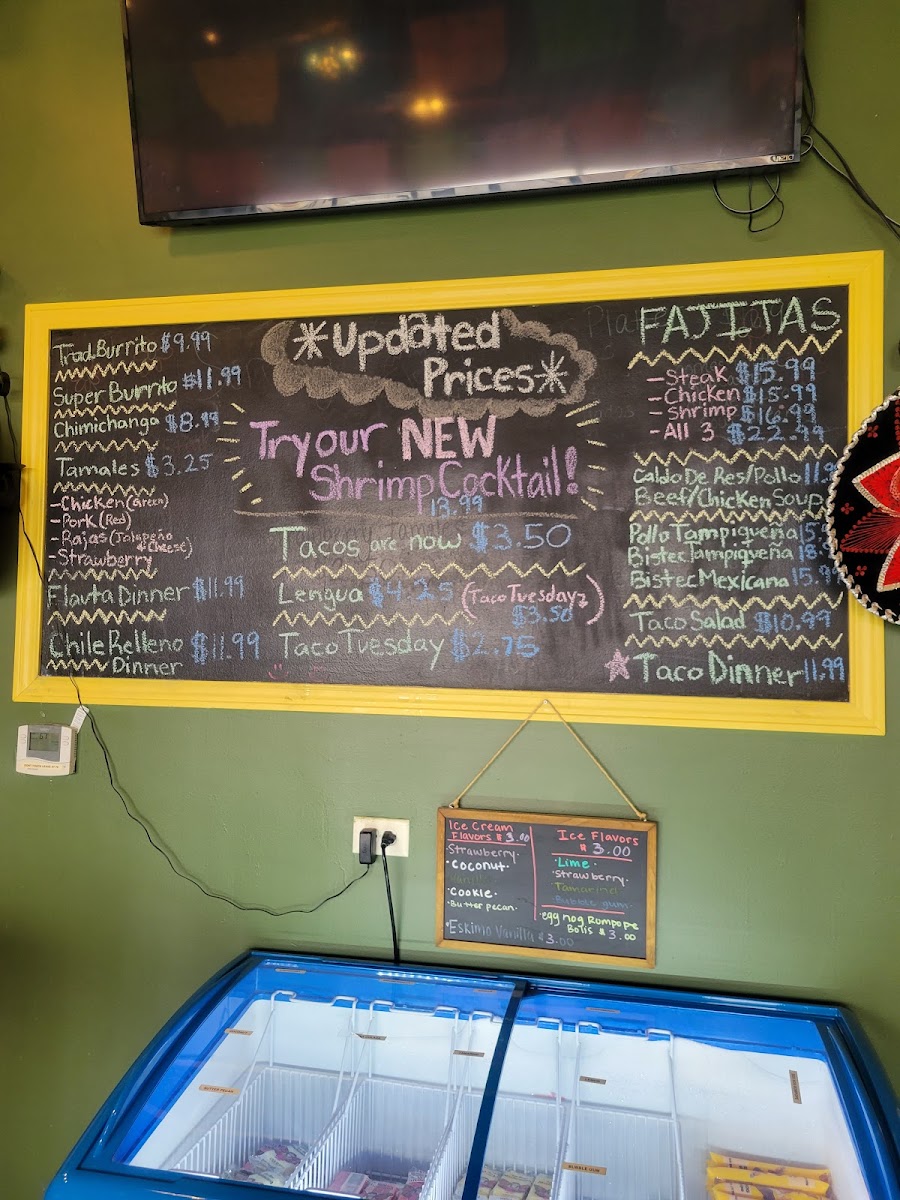 Trad. Burrito $9.99
Super Burrito $11.99
Chimichanga $8.99
Tamales $3.25
-Chicken (Green)
-Pork (Red)
-Rajas (Jalapeño & Cheese)
-Strawberry
Flauta Dinner $11.99
Chile Relleno $11.99
Dinner
*Updated
Prices*
Try our NEW
Shrimp Cocktail!
13.99
Tacos are now $3.50
Lengua $4.25 (Taco Tuesdayz
$3.50)
Taco Tuesday $2.75
FAJITAS
-Steak $15.99
-Chicken $15.99
-Shrimp $16.99
-All 3 $22.99
Caldo De Res/Pollo 11.9
Beef/Chicken Soup
Pollo Tampiqueña 15.9
Bistec Tampiqueña 18.9
Bistec Mexicana 15.99
Taco Salad $10.99
Taco Dinner 11.99
Ice Cream
Flavors $3.00
Strawberry.
·Coconut·
·Cookie·
·Butter pecan·
*Eskimo Vanilla $3.00
Ice Flavors
$3.00
·Lime·
·Strawberry·
Tamarind
Bubble gum
egg nog Rompope
Bolis $3.00